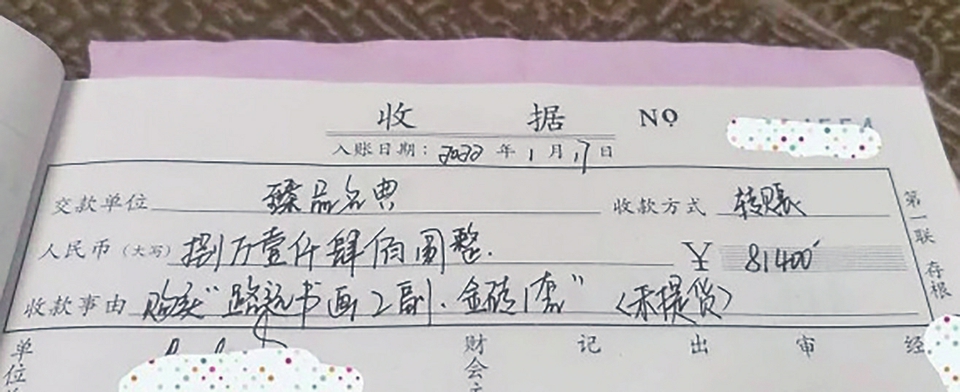 收 据 NO
入账日期：2022 年 1 月 17 日
交款单位 臻品名典 收款方式 转账
人民币（大写）捌万壹仟肆佰圆整. ￥ 81400
收款事由 购买“路远书画2副.金砖1套”〈未提货〉
第一联 存根
单位 财会 记 出 审 经